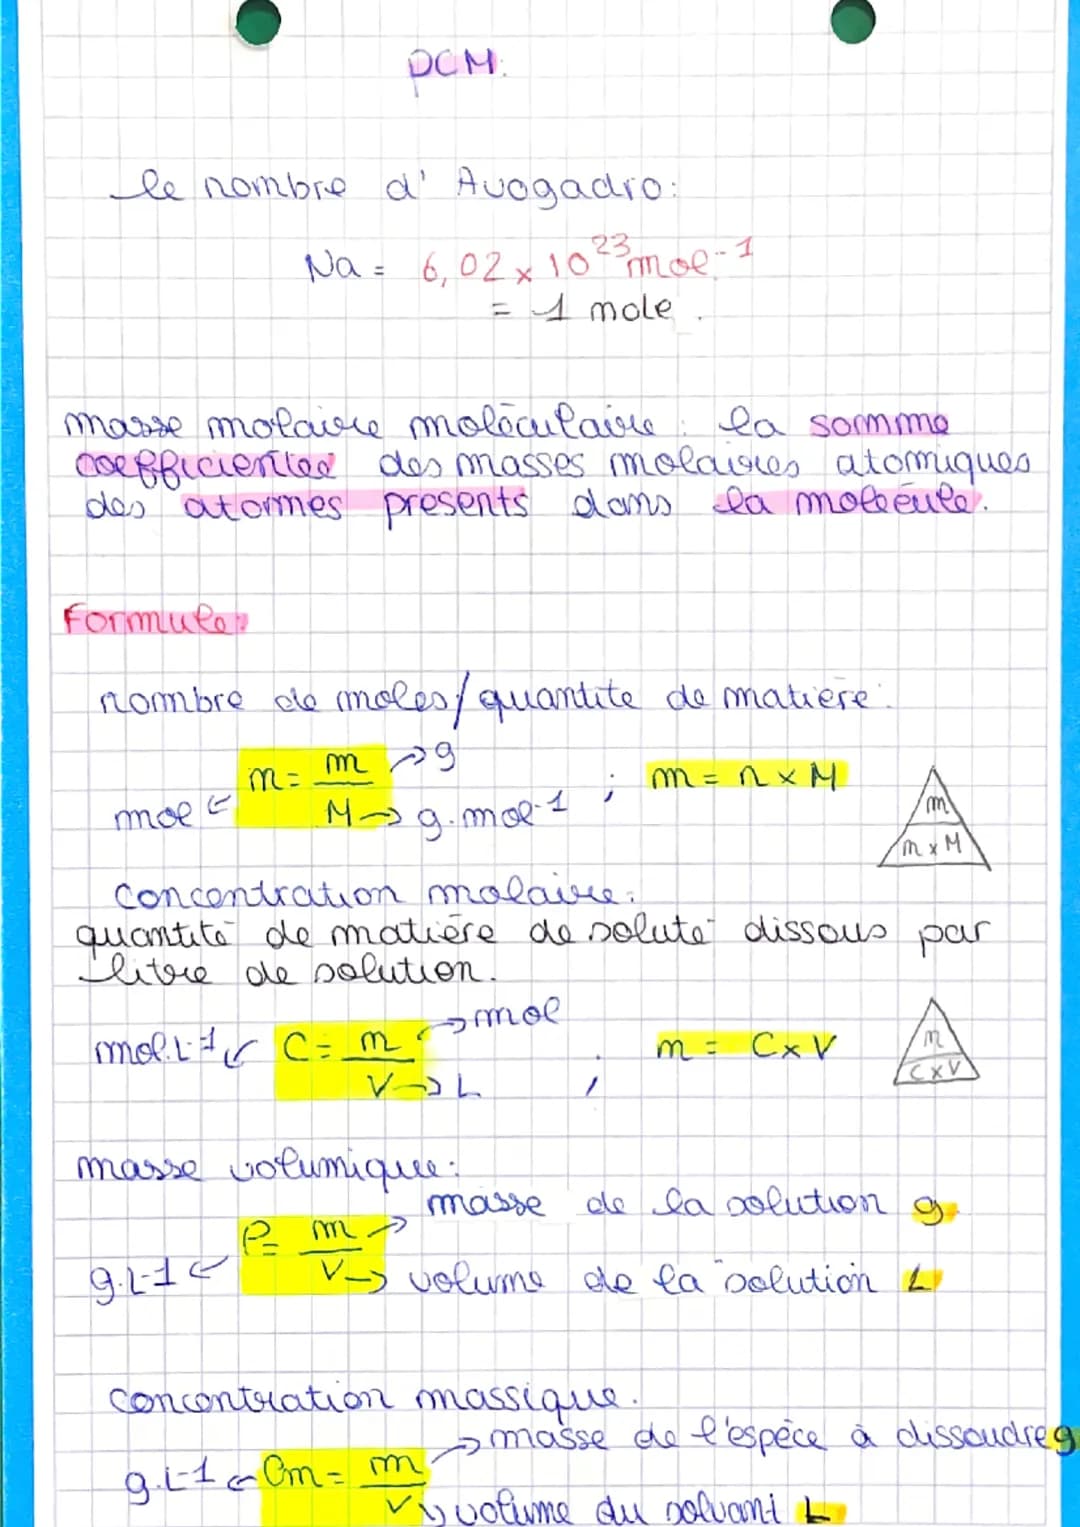 PCM.
le nombre d'Avogadro:
Na = 6,02 x 10²³ mol.⁻¹
= 1 mole.
masse molaire moléculaire : la somme
coefficientée des masses molaires atomiques
des atomes presents dans la molécule.
Formule:
nombre de moles/quantité de matière:
mol ← n = m/M → g ; m = n x M
→ g.mol-1
m
n x M
Concentration molaire:
quantité de matière de soluté dissous par
litre de solution.
mol.L-1 ← C = n/V → mol ; n = C x V
→ L
n
C x V
masse volumique:
g.L-1 ← ρ = m/V → masse de la solution g
→ volume de la solution L
Concentration massique.
g.L-1 ← Cm = m/V → masse de l'espèce à dissoudre g
→ volume du solvant L